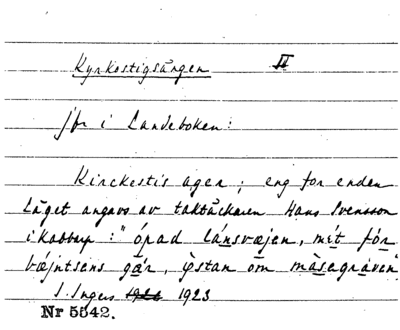 Kyrkostigsången II
jfr i Landeboken:
Kirckestis agen; eng for enden
Läget angavs av taktäckaren Hans Svensson
i Kabbarp: "ópad lánsvæjen, mit fór
bæjntsens gár, ýstan om måsagráven"
I. Ingers 1923
Nr 5542.